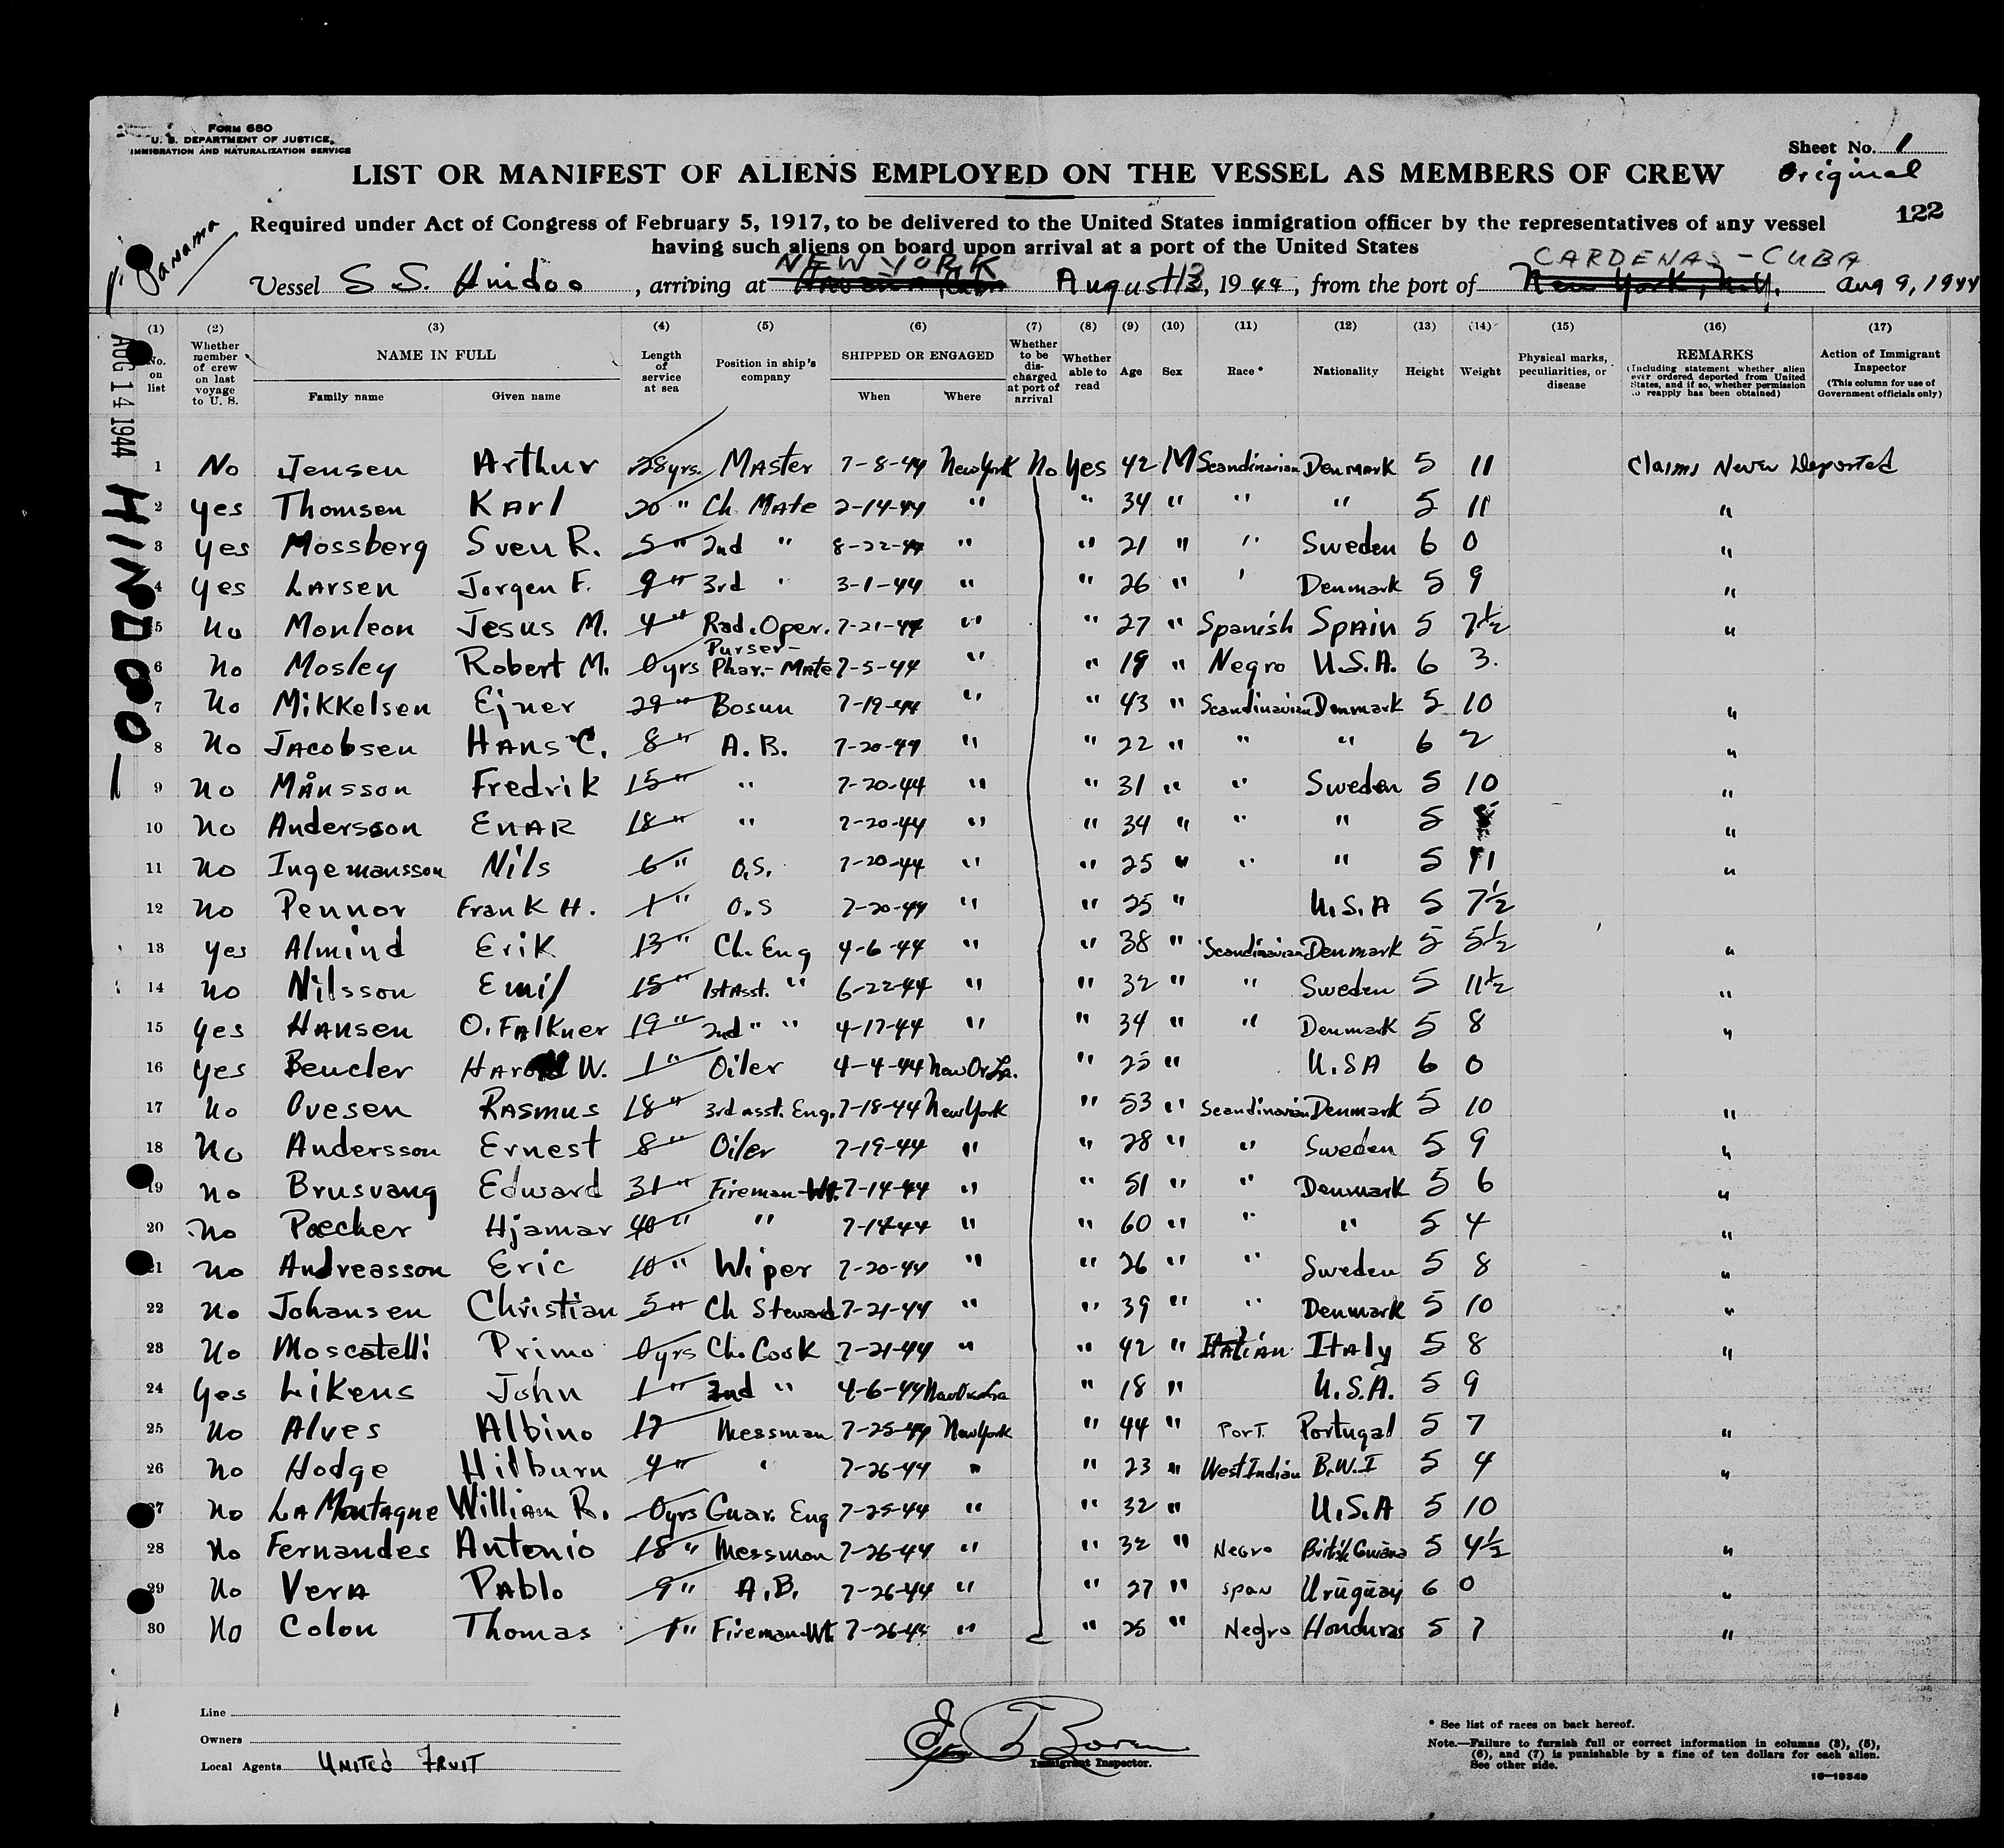 FORM 680
U. S. DEPARTMENT OF JUSTICE,
IMMIGRATION AND NATURALIZATION SERVICE
Sheet No. 1
Original
LIST OR MANIFEST OF ALIENS EMPLOYED ON THE VESSEL AS MEMBERS OF CREW
122
Required under Act of Congress of February 5, 1917, to be delivered to the United States inmigration officer by the representatives of any vessel
having such aliens on board upon arrival at a port of the United States
Panama
NEW YORK
CARDENAS - CUBA
Vessel S S. Hindoo , arriving at Havana, Cuba August 13, 1944, from the port of New York, N.Y. Aug 9, 1944
AUG 14 1944
HINDOO
(1) (2) (3) (4) (5) (6) (7) (8) (9) (10) (11) (12) (13) (14) (15) (16) (17)
No. on list
Whether member of crew on last voyage to U. S.
NAME IN FULL
Family name Given name
Length of service at sea
Position in ship's company
SHIPPED OR ENGAGED
When Where
Whether to be discharged at port of arrival
Whether able to read
Age Sex Race * Nationality Height Weight
Physical marks, peculiarities, or disease
REMARKS
(Including statement whether alien ever ordered deported from United States, and if so, whether permission to reapply has been obtained)
Action of Immigrant Inspector
(This column for use of Government officials only)
1 No Jensen Arthur 28 yrs. Master 7-8-44 New York No Yes 42 M Scandinavian Denmark 5 11 Claims Never Deported
2 Yes Thomsen Karl 20 " Ch. Mate 2-14-44 " " 34 " " " 5 11 "
3 Yes Mossberg Sven R. 5 " 2nd " 8-22-44 " " 21 " " Sweden 6 0 "
4 Yes Larsen Jorgen F. 9 " 3rd " 3-1-44 " " 26 " " Denmark 5 9 "
5 No Monleon Jesus M. 4 " Rad. Oper. 7-21-44 " " 27 " Spanish Spain 5 7½ "
6 No Mosley Robert M. 0 yrs Purser-Phar.-Mate 7-5-44 " " 19 " Negro U.S.A. 6 3.
7 No Mikkelsen Ejner 29 " Bosun 7-19-44 " " 43 " Scandinavian Denmark 5 10 "
8 No Jacobsen Hans C. 8 " A. B. 7-20-44 " " 22 " " " 6 2 "
9 No Månsson Fredrik 15 " " 7-20-44 " " 31 " " Sweden 5 10 "
10 No Andersson Enar 18 " " 7-20-44 " " 34 " " " 5 "
11 No Ingemansson Nils 6 " O.S. 7-20-44 " " 25 " " " 5 11 "
12 No Pennor Frank H. 1 " O.S 7-20-44 " " 25 " U.S.A 5 7½
13 Yes Almind Erik 13 " Ch. Eng 4-6-44 " " 38 " Scandinavian Denmark 5 5½ "
14 No Nilsson Emil 15 " 1st Asst. " 6-22-44 " " 32 " " Sweden 5 11½ "
15 Yes Hansen O. Falkner 19 " 2nd " " 4-17-44 " " 34 " " Denmark 5 8 "
16 Yes Beucler Harold W. 1 " Oiler 4-4-44 New Or. La. " 25 " U.S.A 6 0
17 No Ovesen Rasmus 18 " 3rd asst. Eng. 7-18-44 New York " 53 " Scandinavian Denmark 5 10 "
18 No Andersson Ernest 8 " Oiler 7-19-44 " " 28 " " Sweden 5 9 "
19 No Brusvang Edward 31 " Fireman-Wt. 7-14-44 " " 51 " " Denmark 5 6 "
20 No Paecher Hjamar 40 " " 7-14-44 " " 60 " " " 5 4 "
21 No Andreasson Eric 10 " Wiper 7-20-44 " " 26 " " Sweden 5 8 "
22 No Johansen Christian 5 " Ch Steward 7-21-44 " " 39 " " Denmark 5 10 "
23 No Moscatelli Primo 0 yrs Ch. Cook 7-21-44 " " 42 " Italian Italy 5 8 "
24 Yes Likens John 1 " 2nd " 4-6-44 " 18 " U.S.A. 5 9
25 No Alves Albino 17 Messman 7-25-44 New York " 44 " Port. Portugal 5 7 "
26 No Hodge Hilburn 4 " " 7-26-44 " " 23 " West Indian B.W.I 5 4 "
27 No La Montagne William R. 0 yrs Guar. Eng 7-25-44 " " 32 " U.S.A 5 10
28 No Fernandes Antonio 18 " Messman 7-26-44 " " 32 " Negro British Guiana 5 4½ "
29 No Vera Pablo 9 " A.B. 7-26-44 " " 27 " Span Uruguay 6 0 "
30 No Colon Thomas 1 " Fireman-Wt 7-26-44 " " 25 " Negro Honduras 5 7 "
Line
Owners
Local Agents United Fruit
Immigrant Inspector.
* See list of races on back hereof.
Note.—Failure to furnish full or correct information in columns (3), (5),
(6), and (7) is punishable by a fine of ten dollars for each alien.
See other side.
16—19349